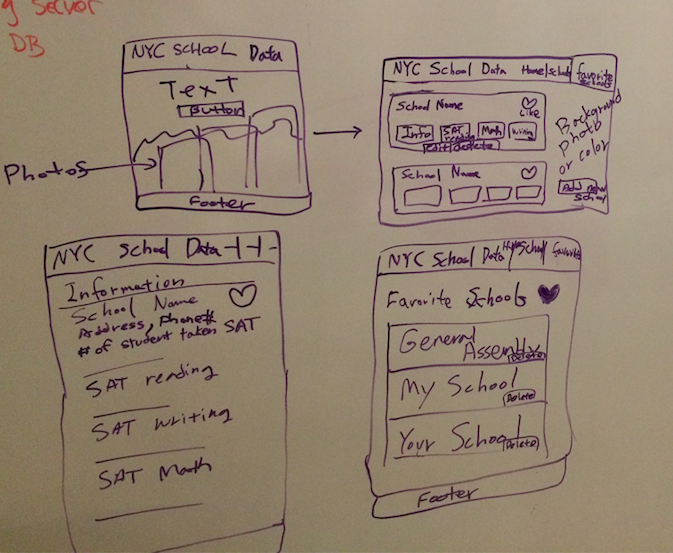 Server
DB
NYC SCHOOL Data
Text
Button
Photos
Footer
NYC School Data Home School favorite schools
School Name
Like
Info SAT reading Math Writing
Edit/delete
School Name
Background
Photo
or color
Add new
school
NYC School Data
Information
School Name
Address, Phone#
# of student taken SAT
SAT reading
SAT Writing
SAT Math
NYC School Data Home School favorite
Favorite Schools
General
Assembly
Delete
My School
Delete
Your School
Delete
Footer